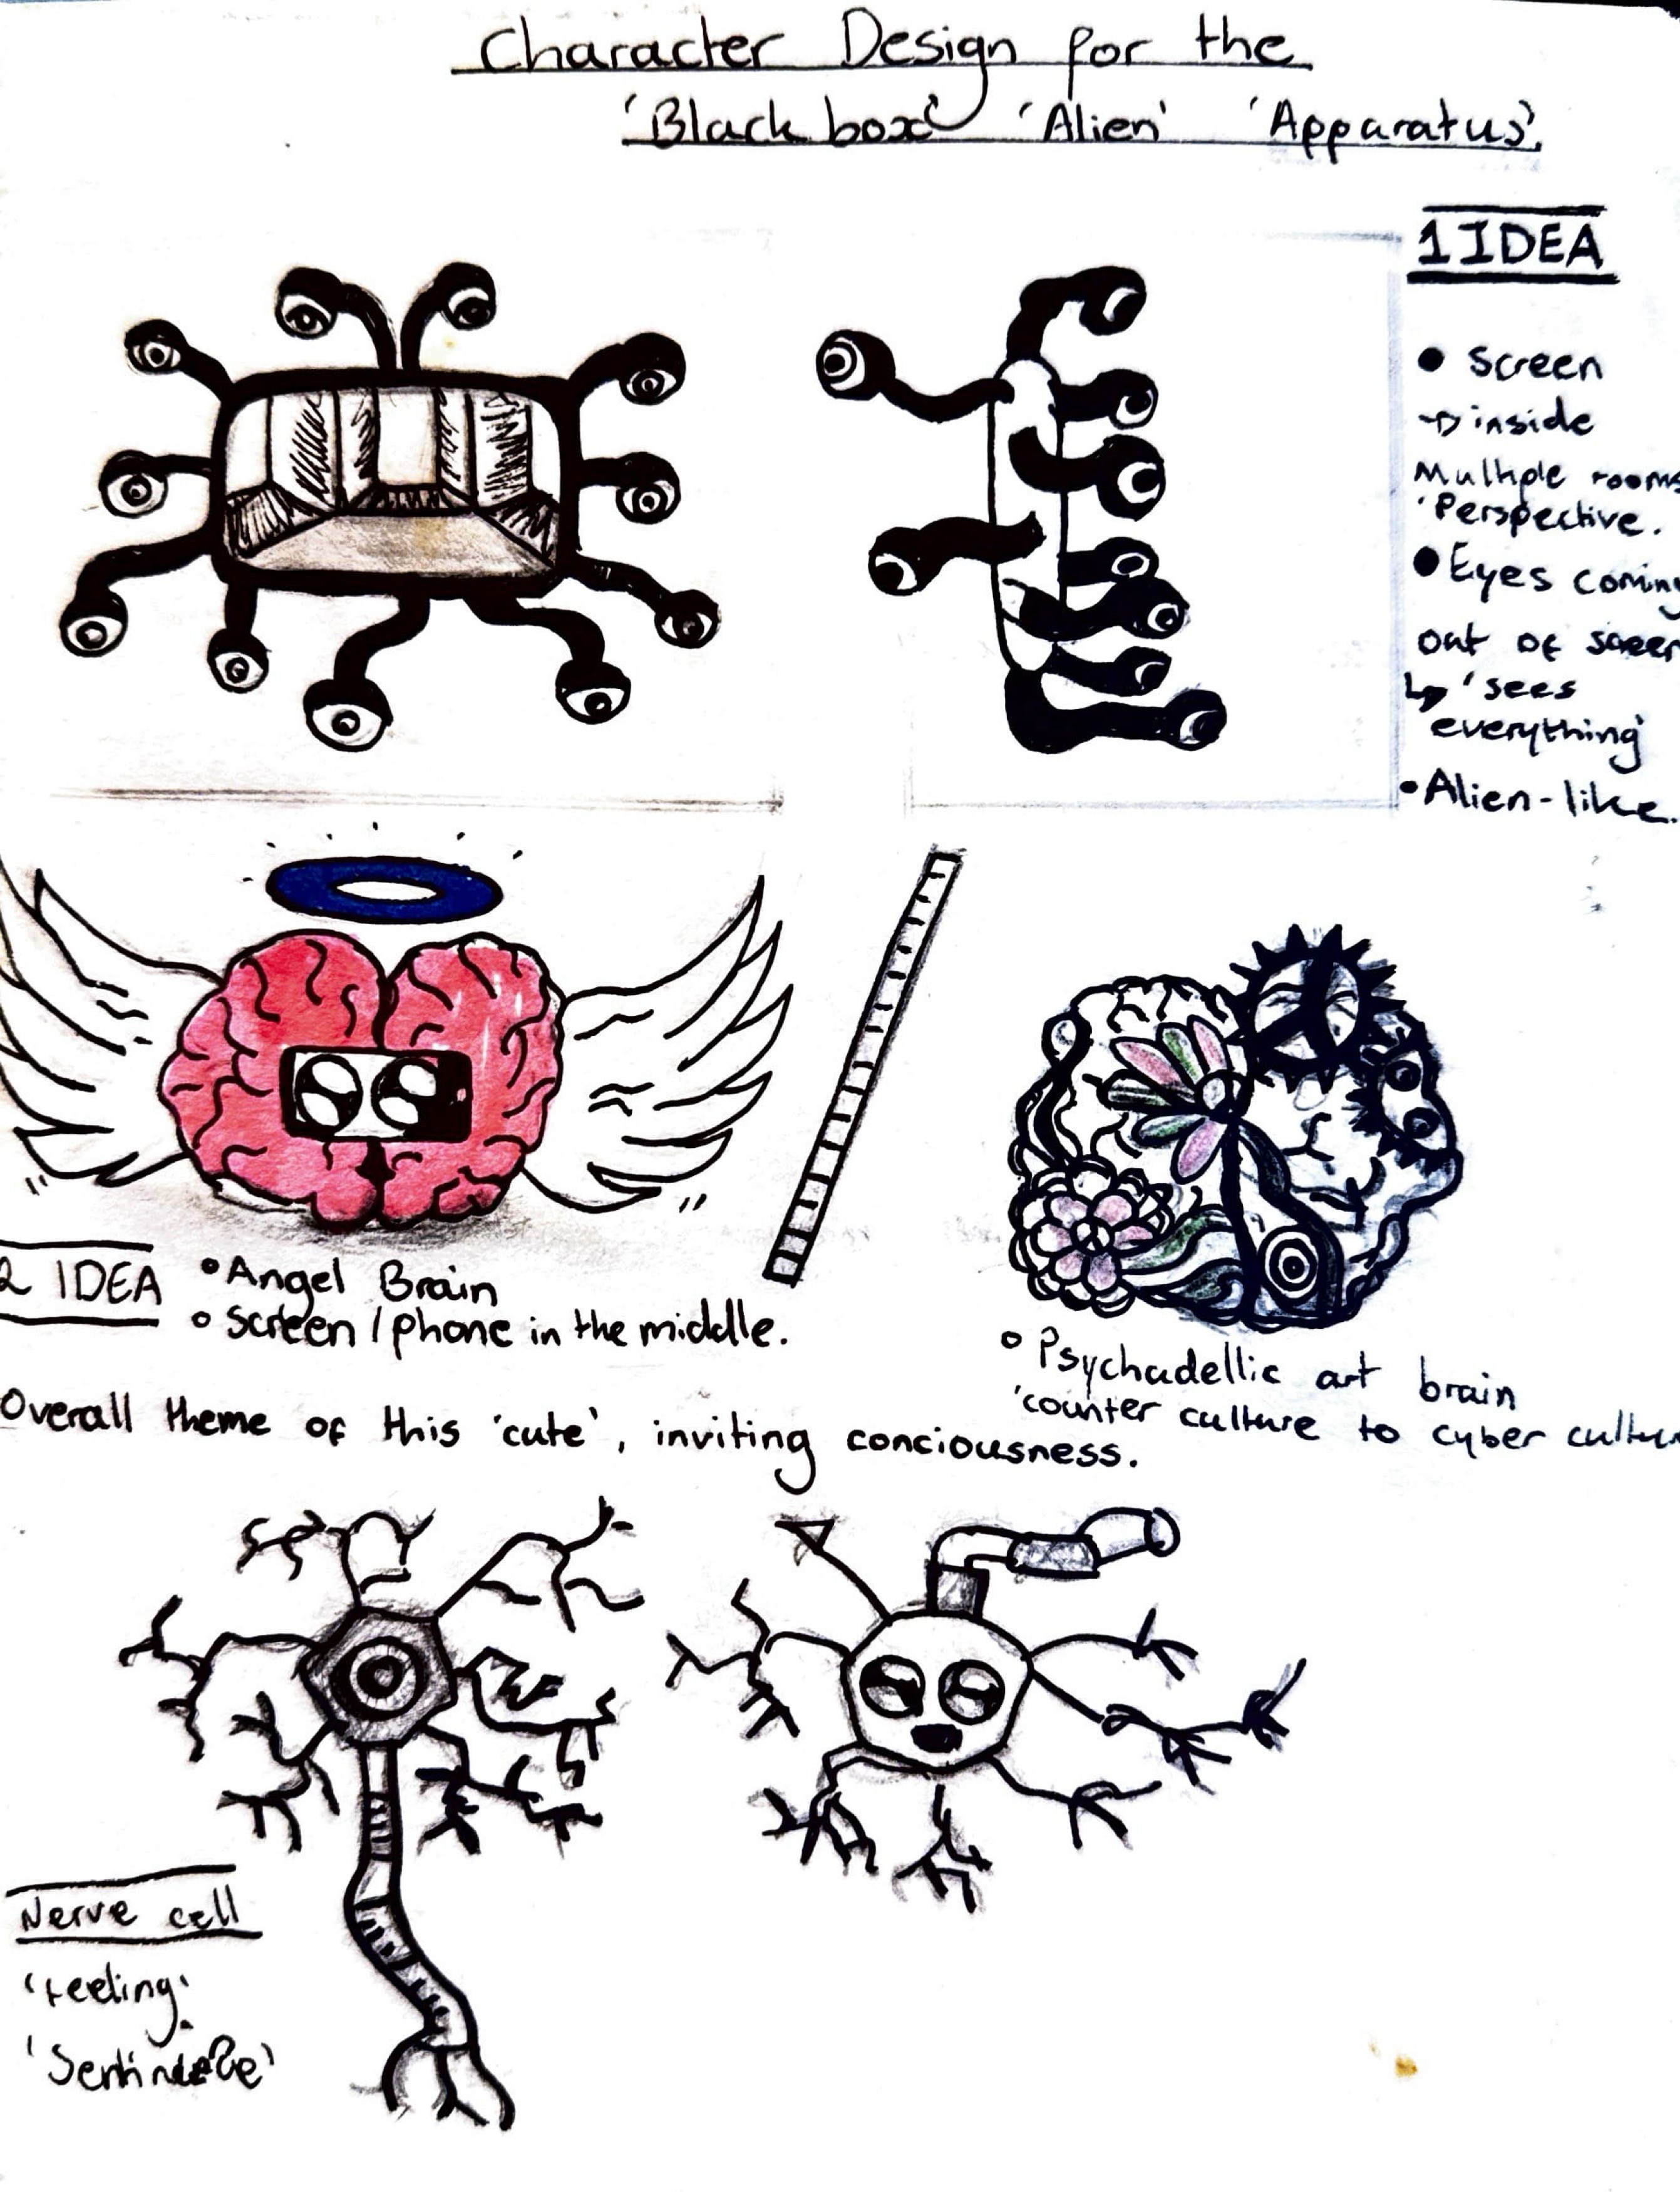 Character Design for the
'Black box' 'Alien' 'Apparatus'.
1 IDEA
• Screen
→ inside
Multiple rooms
'Perspective.
• Eyes coming
out of screen
↳ 'sees
everything'
• Alien-like.
2 IDEA
• Angel Brain
• Screen / phone in the middle.
• Psychadellic art brain
'counter culture to cyber
Overall theme of this 'cute', inviting conciousness.
Nerve cell
'feeling'